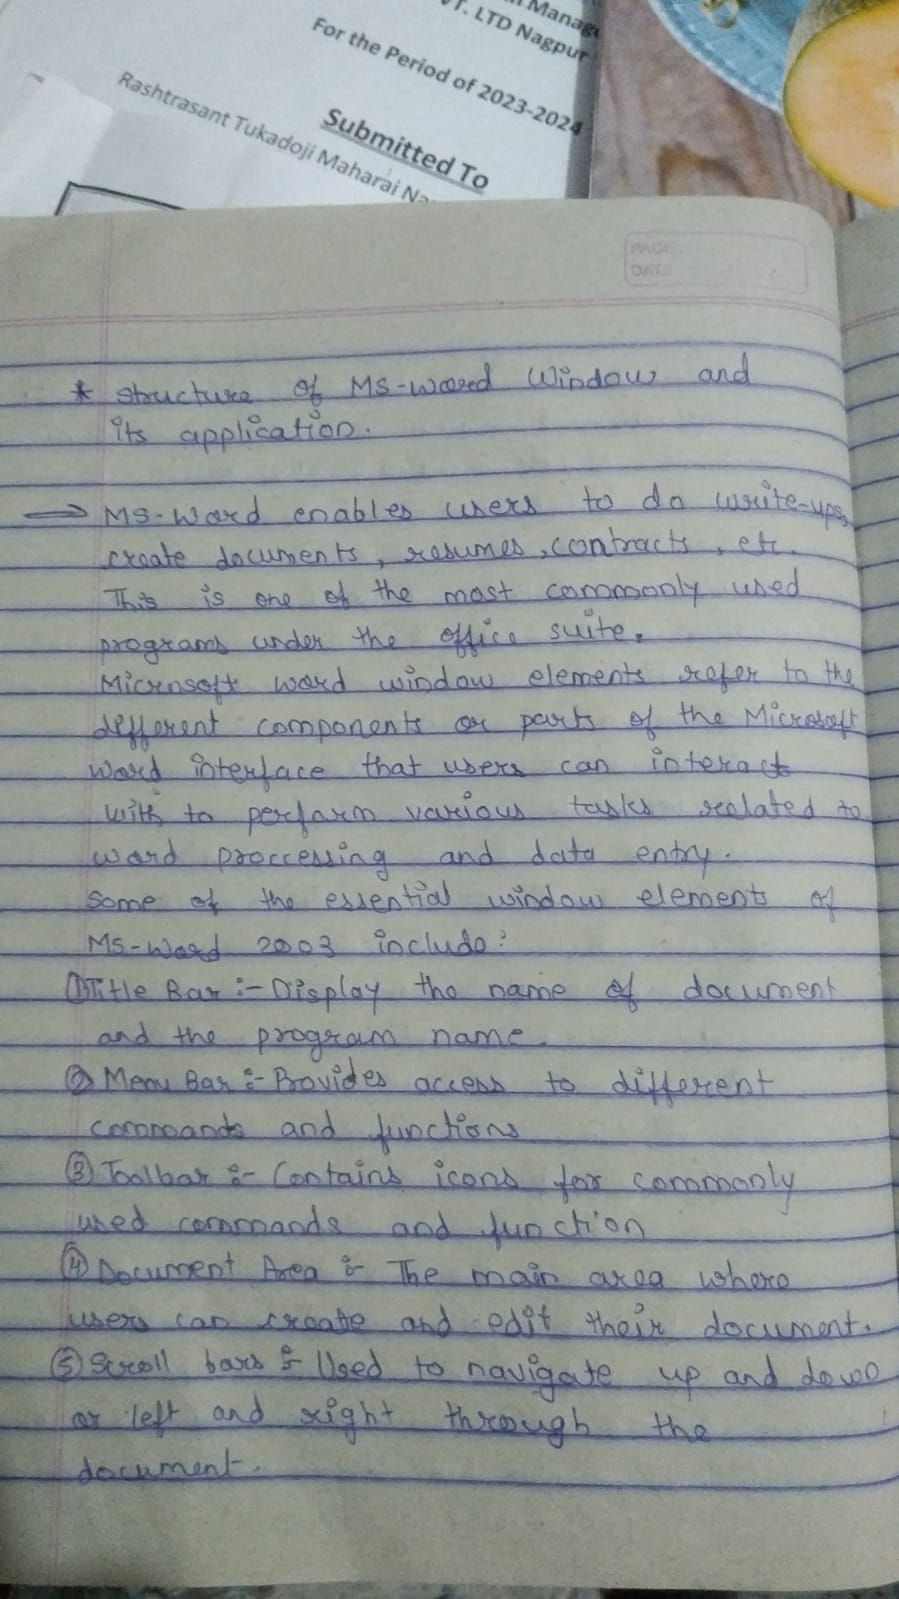 Manag
VT. LTD Nagpur
For the Period of 2023-2024
Submitted To
Rashtrasant Tukadoji Maharaj Na
PAGE
DATE
* structure of MS-word Window and
its application.
→ MS-Word enables users to do write-ups,
create documents, resumes, contracts, etc.
This is one of the most commonly used
programs under the office suite.
Microsoft word window elements refer to the
different components or parts of the Microsoft
Word interface that users can interact
with to perform various tasks realated to
word proccessing and data entry.
Some of the essential window elements of
MS-Word 2003 include:
①Title Bar :- Display the name of document
and the program name.
② Menu Bar :- Provides access to different
commands and functions
③ Toolbar :- Contains icons for commonly
used commands and function
④ Document Area :- The main area where
users can create and edit their document.
⑤ Scroll bars :- Used to navigate up and down
or left and right through the
document.